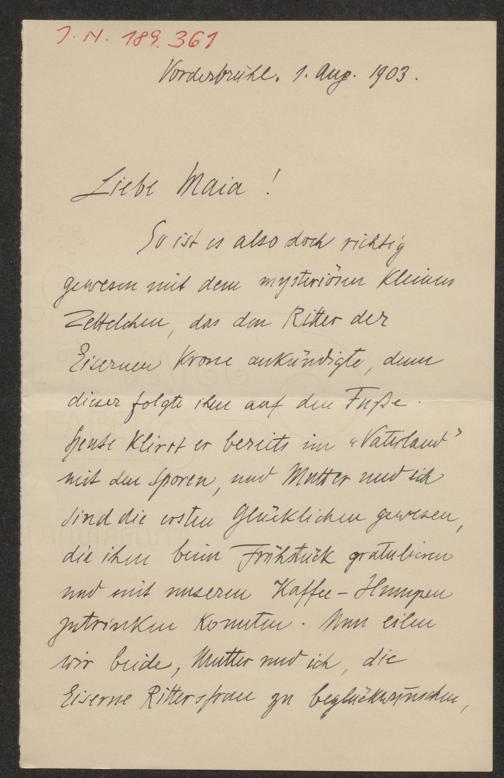 J. N. 189.361
Vorderbrühl. 1. Aug. 1903.
Liebe Maia!
So ist es also doch richtig
gewesen mit dem mysteriösen kleinen
Zettelchen, das den Ritter der
Eisernen Krone ankündigte, denn
dieser folgte ihm auf dem Fuße.
Heute klirrt er bereits im „Vaterland"
mit den Sporen, und Mutter und ich
sind die ersten Glücklichen gewesen,
die ihm beim Frühstück gratulieren
und mit unseren Kaffee-Humpen
zutrinken konnten. Nun eilen
wir beide, Mutter und ich, die
Eiserne Rittersfrau zu beglückwünschen,